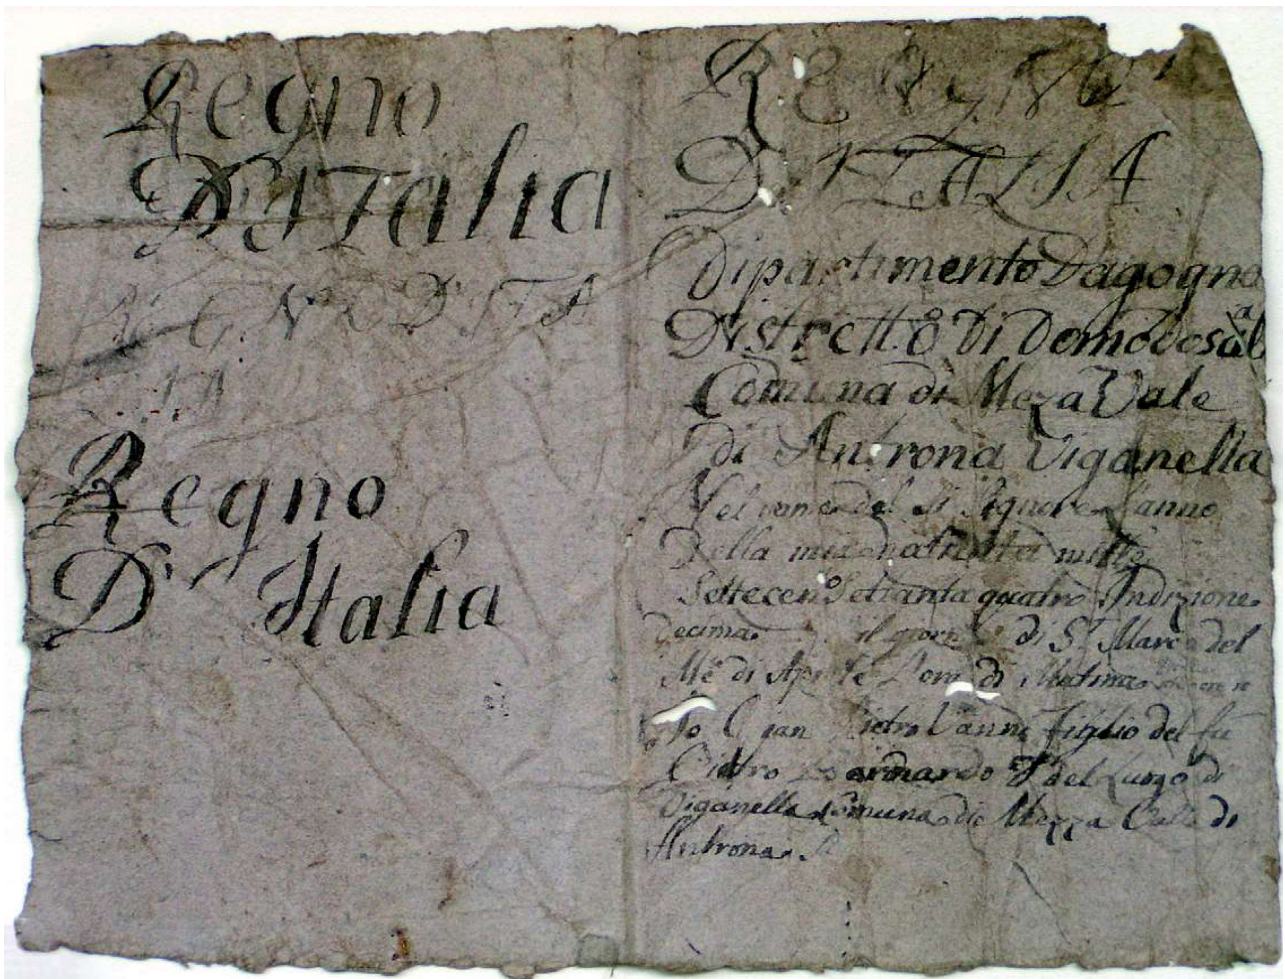 Regno
D'ITalia
REGNO D'ITA
IA
Regno
D' Italia
REGNO
D. ITALIA
Dipartimento Dagogna
Distretto Di Domodosa
Comuna di Meza Vale
di Antrona Viganella
Nel del Signore Lanno
Della mille
Settecen Setanta quatro Indizione
Decima il giorn di St. Marco del
Me di Aprile di Matina
Io Gian Pietro Vanni figlio del fu
Pietro Bernardo del Luogo di
Viganella Comuna di Mezza Valle di
Antrona